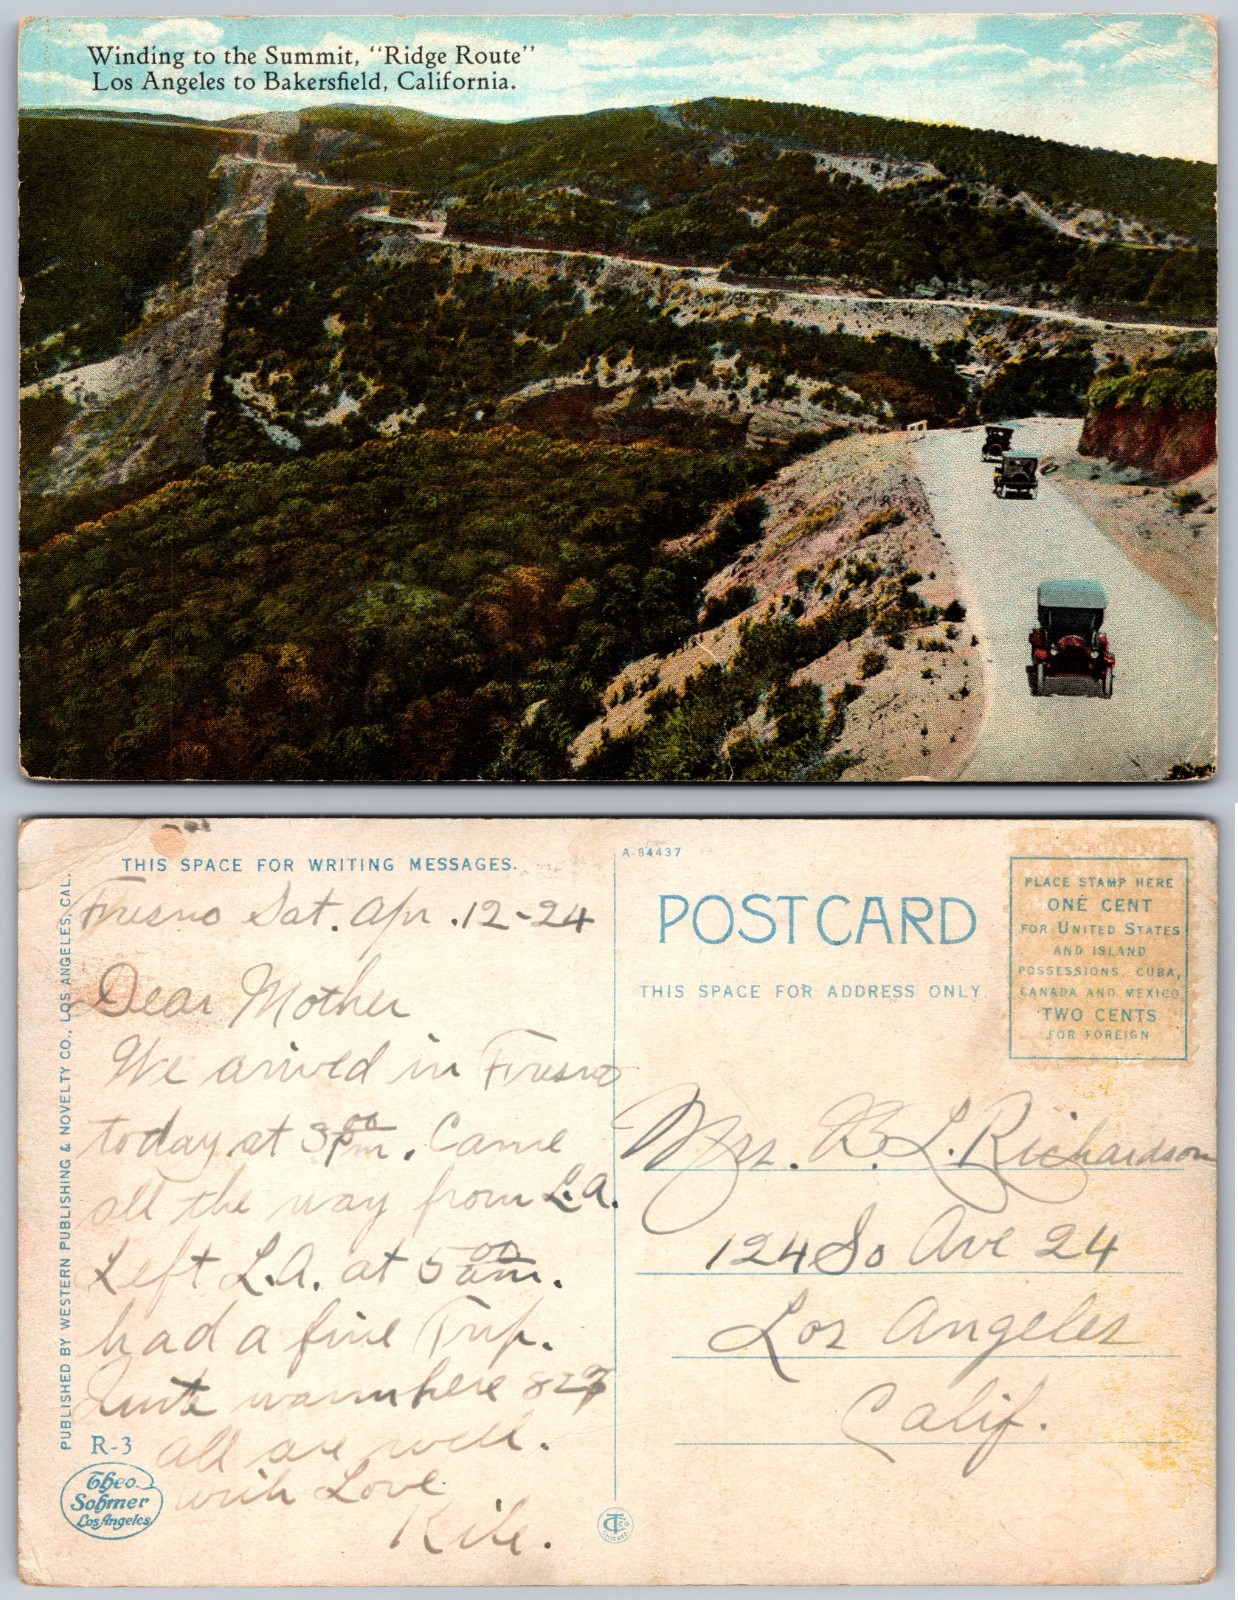 Winding to the Summit, "Ridge Route"
Los Angeles to Bakersfield, California.
THIS SPACE FOR WRITING MESSAGES.
Fresno Sat. Apr. 12-24
Dear Mother
We arrived in Fresno
today at 3 00 pm. Came
all the way from L.A.
Left L.A. at 5 00 am.
had a fine Trip.
Quite warm here 82
all are well.
with Love
PUBLISHED BY WESTERN PUBLISHING & NOVELTY CO., LOS ANGELES, CAL.
R-3
Theo
Sohmer
Los Angeles
A-64437
POST CARD
THIS SPACE FOR ADDRESS ONLY
PLACE STAMP HERE
ONE CENT
FOR UNITED STATES
AND ISLAND
POSSESSIONS, CUBA,
CANADA AND MEXICO
TWO CENTS
FOR FOREIGN
Mrs. R. L. Richardson
124 So Ave 24
Los Angeles
Calif.